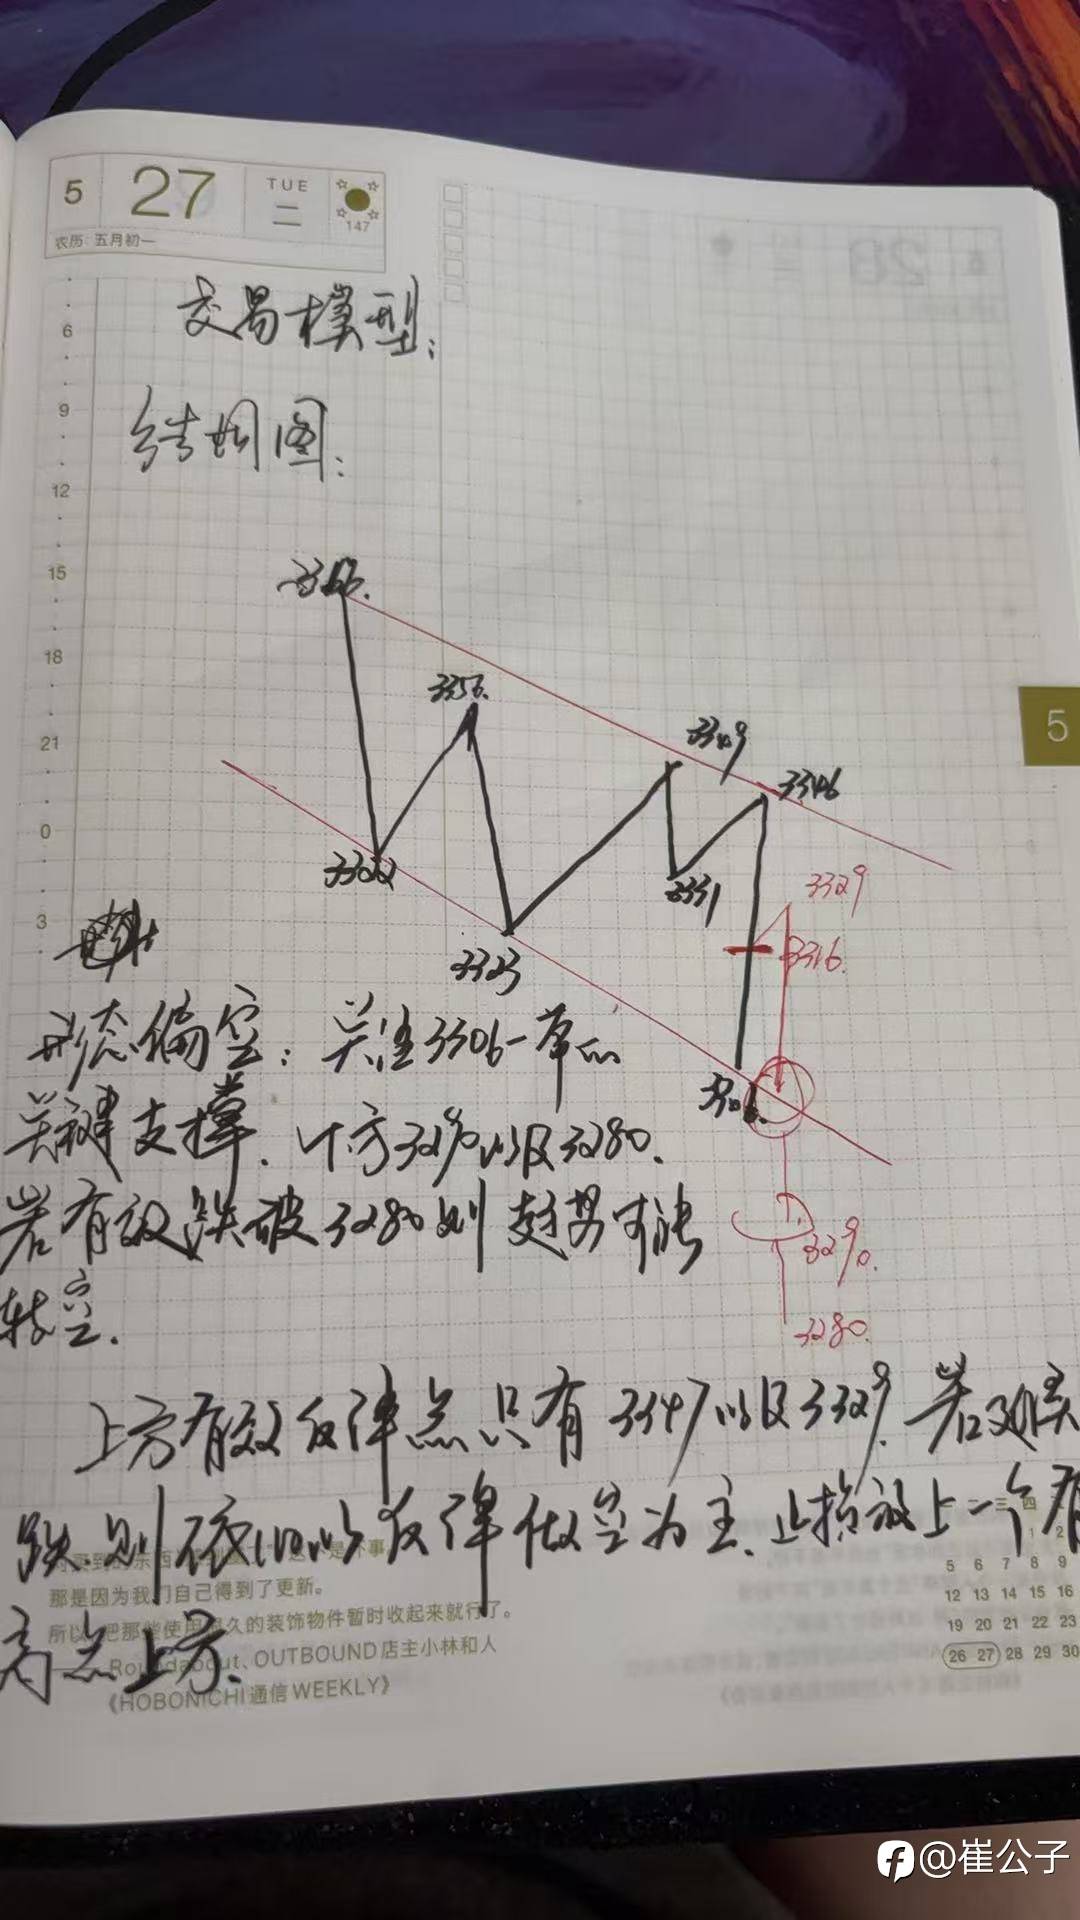 5 27 TUE 二
147
农历: 五月初一
交易模型:
6
9
结构图:
12
15
18
3356.
21
3349
3346
0
3322
3331
3329
3
3316.
3323
形态偏空: 关注3306一带的
3306.
关键支撑. 下方3290以及3280.
5
若有效跌破3280则趋势可能
3290.
转空.
3280.
上方有效反弹点只有3347以及3329. 若延续
跌.则依旧以反弹做空为主.止损放上一个有
高点上方.
那是因为我们自己得到了更新。
所以 把那些使用 久的装饰物件暂时收起来就行了。
Roundabout、OUTBOUND店主小林和人
《HOBONICHI通信WEEKLY》
三 四
1 2
5 6 7 8 9
12 13 14 15 16
19 20 21 22 23
26 27 28 29 30
@崔公子